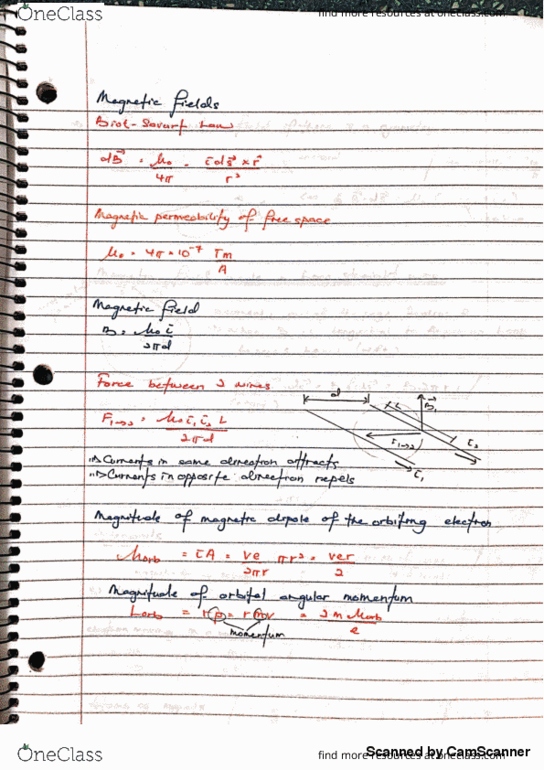 OneClass
find more resources at oneclass.com
Magnetic Fields
Biot-Savart Law
dB⃗ = μ₀/4π · i ds⃗ × r⃗/r³
Magnetic permeability of free space
μ₀ = 4π × 10⁻⁷ Tm/A
Magnetic Field
B = μ₀i/2πd
Force between 2 wires
d
L
B⃗₁
F₁→₂ = μ₀i₁i₂L/2πd
F₁→₂
i₂
i₁
Currents in same direction attracts
Currents in opposite direction repels
Magnitude of magnetic dipole of the orbiting electron
μorb = iA = ve/2πr πr² = ver/2
Magnitude of orbital angular momentum
Lorb = rp = rmv = 2m μorb/e
momentum
OneClass
find more resources at oneclass.com
Scanned by CamScanner